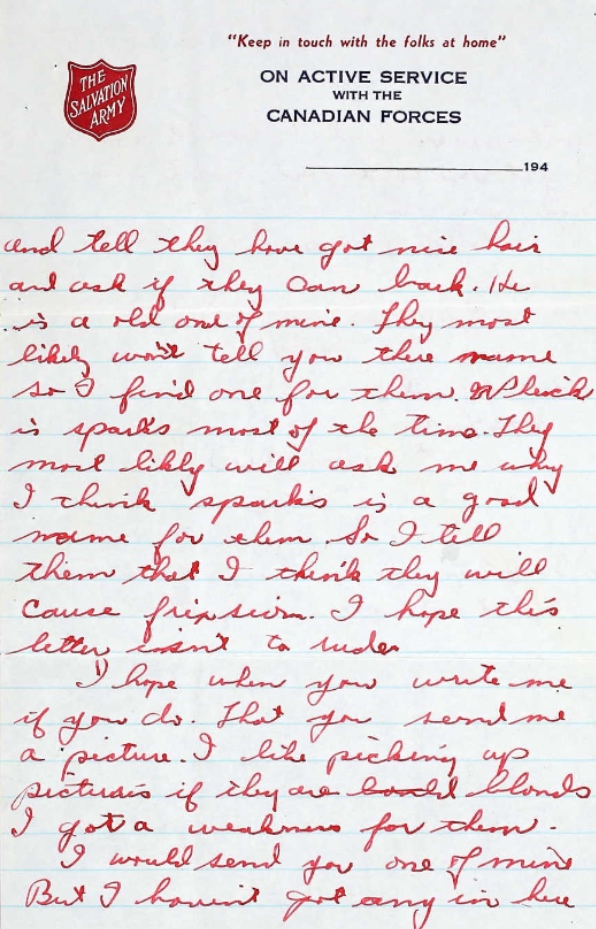 "Keep in touch with the folks at home"
THE
SALVATION
ARMY
ON ACTIVE SERVICE
WITH THE
CANADIAN FORCES
194
and tell they have got nice hair
and ask if they can bark. He
is a old one of mine. They most
likely won't tell you there name
so I find one for them. Which
is sparks most of the time. They
most likly will ask me why
I think sparks is a good
name for them So I tell
them that I think they will
cause fripsion. I hope this
letter isn't to rude
I hope when you write me
if you do. That you send me
a picture. I like picking up
pictures if they are blonds
I got a weakness for them.
I would send you one of mine
But I haven't got any in here